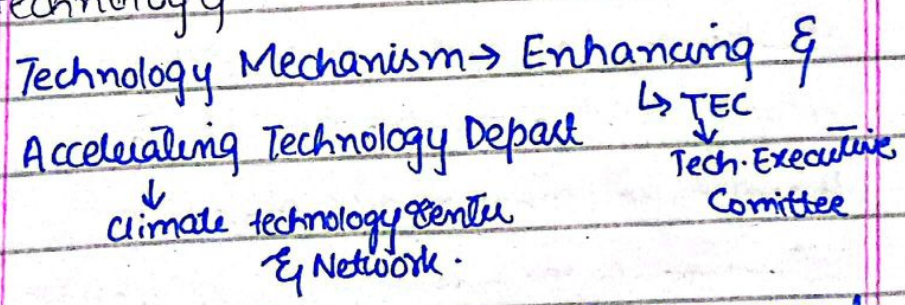 Technology
Technology Mechanism → Enhancing &
↳ TEC
Accelerating Technology Depart
↓
Tech. Executive
Comittee
↓
Climate technology Center
& Network.